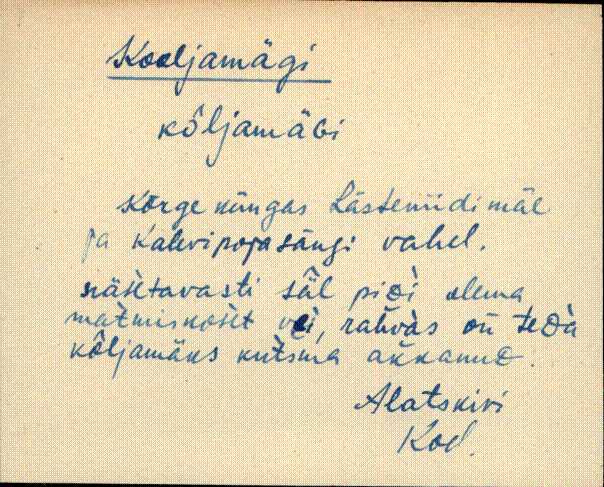 Kooljamägi
kôljamäGi
Kõrge küngas Lästemidi mäe
ja Kalevipoja sängi vahel.
näsetavasti säl piDi olema
matmiskoset vei, rahvas on teDa
kôljamäks kutsma akkanuD.
Alatskivi
Kod.